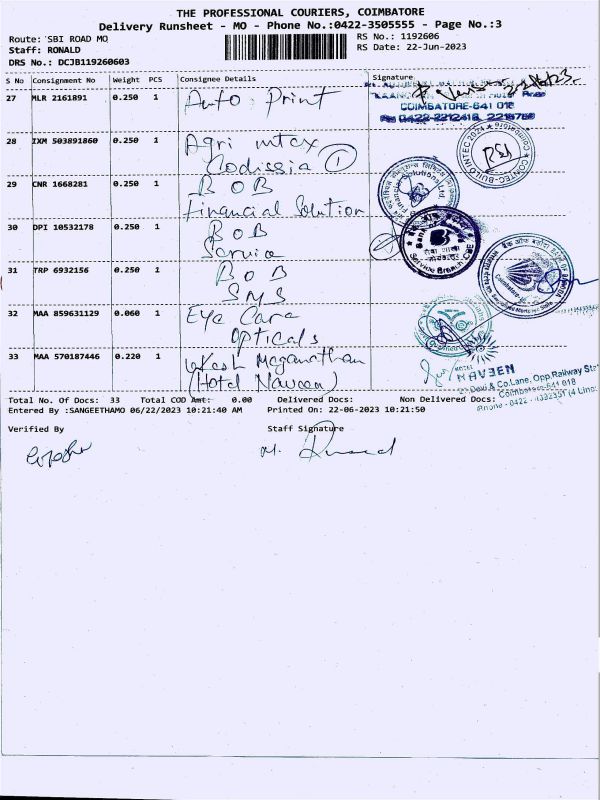 THE PROFESSIONAL COURIERS, COIMBATORE
Delivery Runsheet - MO - Phone No.:0422-3505555 - Page No.:3
Route: SBI ROAD MO
RS No.: 1192606
Staff: RONALD
RS Date: 22-Jun-2023
DRS No.: DCJB119260603
S No Consignment No Weight PCS Consignee Details Signature
27 MLR 2161891 0.250 1 Auto Print
COIMBATORE-641 018
0422-2212418, 2216780
28 IXM 503891860 0.250 1 Agri intex
Codissia 1
29 CNR 1668281 0.250 1 BOB
Financial Solution
30 DPI 10532178 0.250 1 BOB
Service
Service Branch, CBE
31 TRP 6932156 0.250 1 BOB
SMS
32 MAA 859631129 0.060 1 Eye Care
Opticals
33 MAA 570187446 0.220 1
(Hotel Naveen)
HOTEL NAVEEN
Devi & Co.Lane, Opp.Railway
Coimbatore-641 018
Total No. Of Docs: 33 Total COD Amt: 0.00 Delivered Docs: Non Delivered Docs:
Entered By :SANGEETHAMO 06/22/2023 10:21:40 AM Printed On: 22-06-2023 10:21:50
Verified By Staff Signature